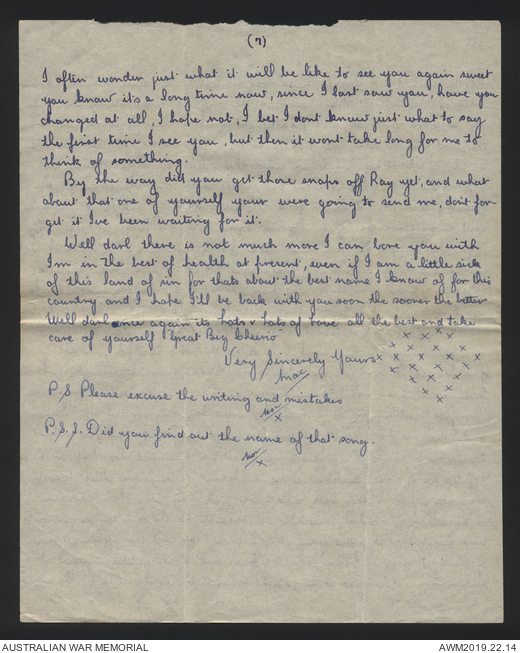 (7)
I often wonder just what it will be like to see you again sweet
you know it's a long time now, since I last saw you, have you
changed at all, I hope not, I bet I dont know just what to say
the first time I see you, but then it wont take long for me to
think of something.
By the way did you get those snaps off Ray yet, and what
about that one of yourself your were going to send me, don't for-
get it I've been waiting for it.
Well darl there is not much more I can bore you with
Im in the best of health at present, even if I am a little sick
of this land of sin for thats about the best name I know of for this
country and I hope I'll be back with you soon the sooner the better
Well darl once again its Lots & Lots of love all the best and take
care of yourself Great Big Cheerio
Very Sincerely Yours
Mac
x x x x x x x x x x x x x x x x x x x x x x
P.S Please excuse the writing and mistakes
x
P.S.S. Did you find out the name of that song.
x
AUSTRALIAN WAR MEMORIAL
AWM2019.22.14